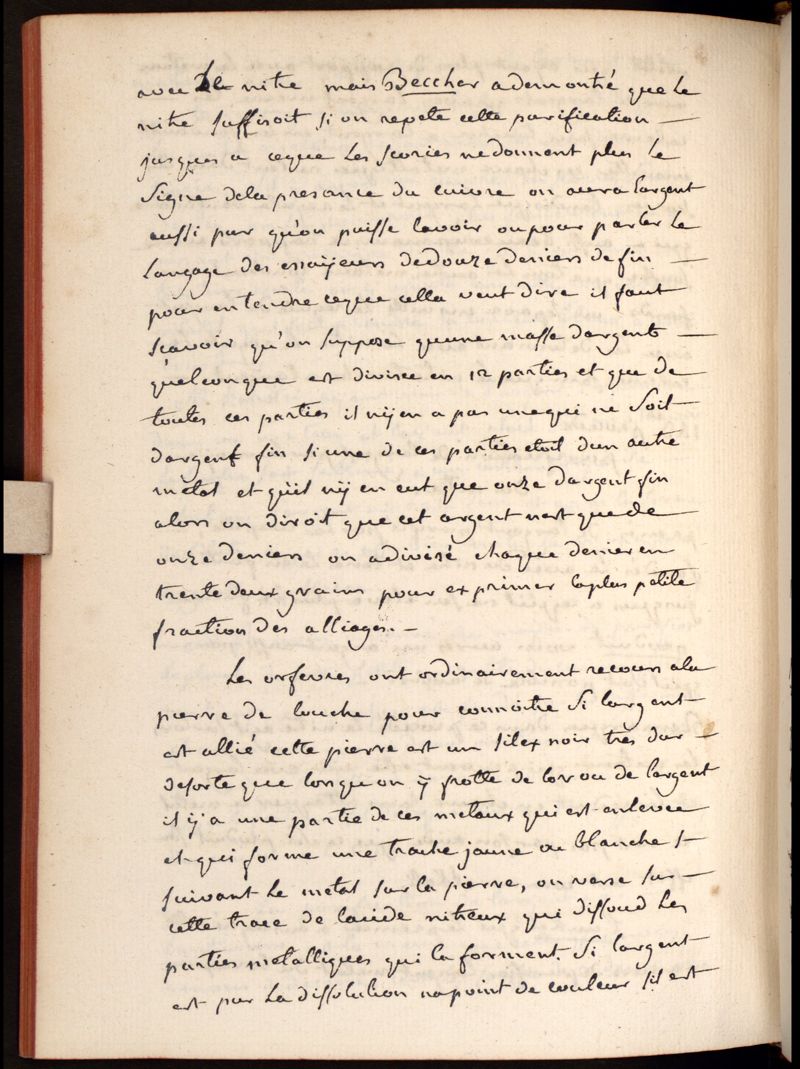 avec le nitre mais Beccher a demontré que le
nitre suffisoit si on repete cette purification —
jusques a ceque les scories ne donnent plus le
signe dela presance du cuivre on aura largent
aussi pur qu'on puisse lavoir ou pour parler le
langage des essaÿeurs dedouze deniers de fin —
pour entendre ceque cella veut dire il faut
scavoir qu'on suppose quune masse dargent —
quelconque est divisee en 12 parties et que de
toutes ces parties il nÿ en a pas une qui ne soit
dargent fin si une de ces parties etoit dun autre
metal et quil nÿ en eut que onze dargent fin
alors on diroit que cet argent nest que de
onze deniers on a divisé chaque denier en
trente deux grains pour exprimer la plus petite
fraction des alliages. —
Les orfevres ont ordinairement recours ala
pierre de touche pour connoitre si largent
est allié cette pierre est un silex noir tres dur —
desorte que lorsquon ÿ frotte de lor ou de largent
il ÿ a une partie de ces metaux qui est enlevée
et qui forme une trache jaune ou blanche
suivant le metal sur la pierre, on verse sur —
cette trace de lacide nitreux qui dissoud les
parties metalliques qui la forment. Si largent
est pur la dissolution na point de couleur sil est